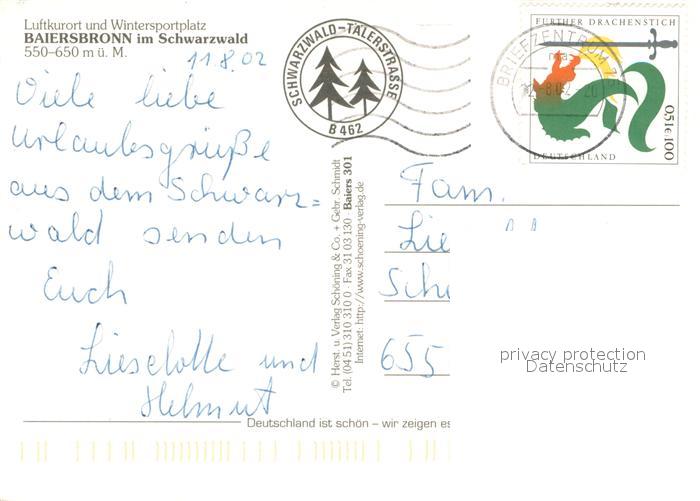 Luftkurort und Wintersportplatz
BAIERSBRONN im Schwarzwald
550–650 m ü. M.
11.8.02
Viele liebe
Urlaubsgrüße
aus dem Schwarz=
wald senden
Euch
Lieselotte und
Helmut
SCHWARZWALD-TÄLERSTRASSE
B 462
FURTHER DRACHENSTICH
BRIEFZENTRUM
DEUTSCHLAND
0,51€ 100
© Herst. u. Verlag Schöning & Co. + Gebr. Schmidt
Tel. (04 51) 310 310 0 · Fax 31 03 130 · Baiers 301
Internet: http://www.schoening-verlag.de
Fam.
Lie
Sch
655
privacy protection
Datenschutz
Deutschland ist schön – wir zeigen es